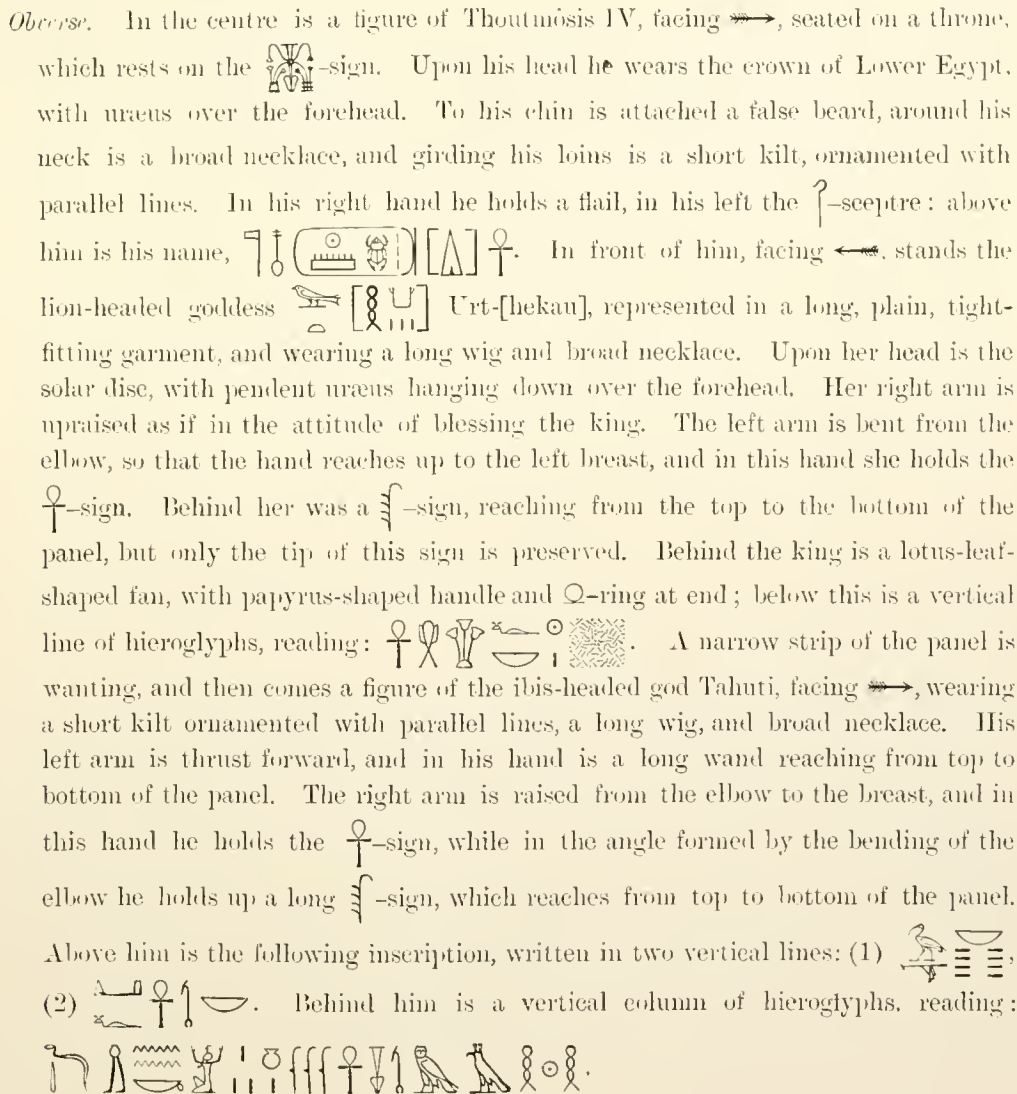 Obverse. In the centre is a figure of Thoutmôsis IV, facing, seated on a throne,
which rests on the -sign. Upon his head he wears the crown of Lower Egypt,
with uræus over the forehead. To his chin is attached a false beard, around his
neck is a broad necklace, and girding his loins is a short kilt, ornamented with
parallel lines. In his right hand he holds a flail, in his left the 𓋾–sceptre: above
him is his name, 𓊹𓄤 . In front of him, facing, stands the
lion-headed goddess Urt-[hekau], represented in a long, plain, tight-
fitting garment, and wearing a long wig and broad necklace. Upon her head is the
solar disc, with pendent uræus hanging down over the forehead. Her right arm is
upraised as if in the attitude of blessing the king. The left arm is bent from the
elbow, so that the hand reaches up to the left breast, and in this hand she holds the
𓋹–sign. Behind her was a 𓆳–sign, reaching from the top to the bottom of the
panel, but only the tip of this sign is preserved. Behind the king is a lotus-leaf-
shaped fan, with papyrus-shaped handle and 𓍶–ring at end; below this is a vertical
line of hieroglyphs, reading: . A narrow strip of the panel is
wanting, and then comes a figure of the ibis-headed god Tahuti, facing, wearing
a short kilt ornamented with parallel lines, a long wig, and broad necklace. His
left arm is thrust forward, and in his hand is a long wand reaching from top to
bottom of the panel. The right arm is raised from the elbow to the breast, and in
this hand he holds the 𓋹–sign, while in the angle formed by the bending of the
elbow he holds up a long 𓆳–sign, which reaches from top to bottom of the panel.
Above him is the following inscription, written in two vertical lines: (1) ,
(2) . Behind him is a vertical column of hieroglyphs, reading: